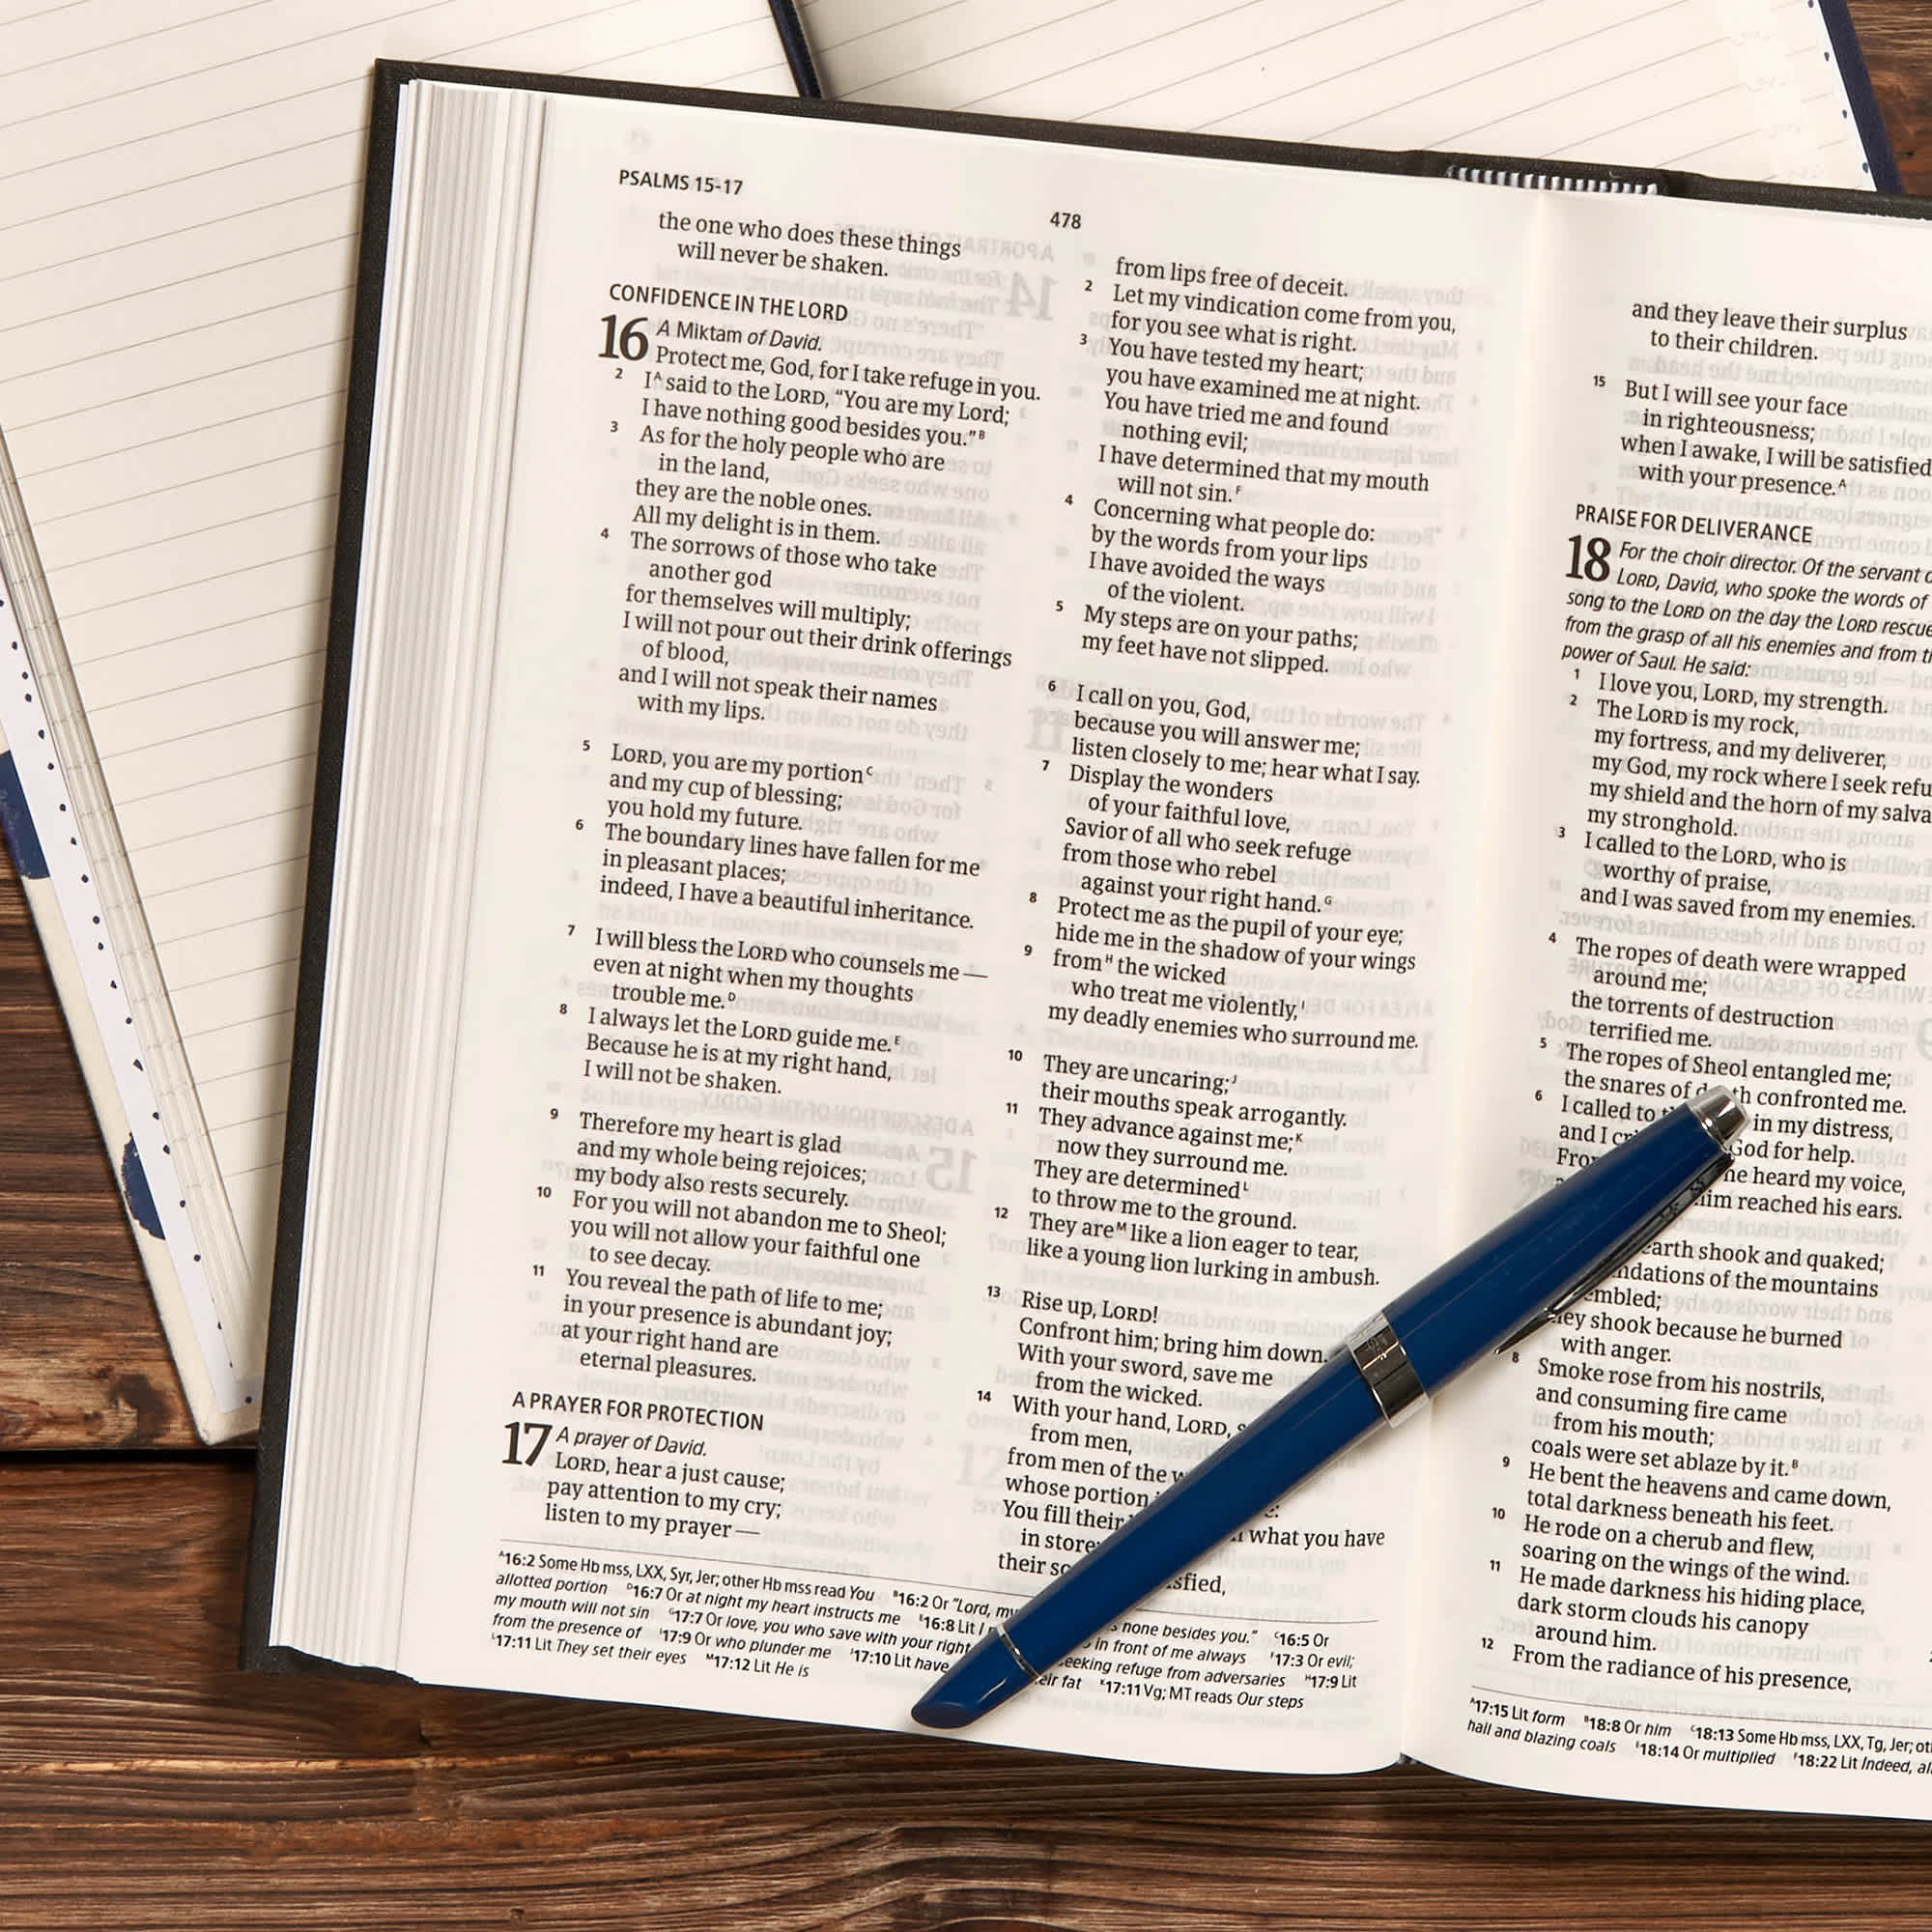 PSALMS 15-17
478
the one who does these things
will never be shaken.
CONFIDENCE IN THE LORD
16 A Miktam of David.
Protect me, God, for I take refuge in you.
2 I^A said to the LORD, “You are my Lord;
I have nothing good besides you.”^B
3 As for the holy people who are
in the land,
they are the noble ones.
All my delight is in them.
4 The sorrows of those who take
another god
for themselves will multiply;
I will not pour out their drink offerings
of blood,
and I will not speak their names
with my lips.
5 LORD, you are my portion^C
and my cup of blessing;
you hold my future.
6 The boundary lines have fallen for me
in pleasant places;
indeed, I have a beautiful inheritance.
7 I will bless the LORD who counsels me —
even at night when my thoughts
trouble me.^D
8 I always let the LORD guide me.^E
Because he is at my right hand,
I will not be shaken.
9 Therefore my heart is glad
and my whole being rejoices;
my body also rests securely.
10 For you will not abandon me to Sheol;
you will not allow your faithful one
to see decay.
11 You reveal the path of life to me;
in your presence is abundant joy;
at your right hand are
eternal pleasures.
A PRAYER FOR PROTECTION
17 A prayer of David.
LORD, hear a just cause;
pay attention to my cry;
listen to my prayer —
from lips free of deceit.
2 Let my vindication come from you,
for you see what is right.
3 You have tested my heart;
you have examined me at night.
You have tried me and found
nothing evil;
I have determined that my mouth
will not sin.^F
4 Concerning what people do:
by the words from your lips
I have avoided the ways
of the violent.
5 My steps are on your paths;
my feet have not slipped.
6 I call on you, God,
because you will answer me;
listen closely to me; hear what I say.
7 Display the wonders
of your faithful love,
Savior of all who seek refuge
from those who rebel
against your right hand.^G
8 Protect me as the pupil of your eye;
hide me in the shadow of your wings
9 from^H the wicked
who treat me violently,^I
my deadly enemies who surround me.
10 They are uncaring;^J
their mouths speak arrogantly.
11 They advance against me;^K
now they surround me.
They are determined^L
to throw me to the ground.
12 They are^M like a lion eager to tear,
like a young lion lurking in ambush.
13 Rise up, LORD!
Confront him; bring him down.
With your sword, save me
from the wicked.
14 With your hand, LORD,
from men,
from men of the
whose portion
You fill their what you have
in store
their
^A16:2 Some Hb mss, LXX, Syr, Jer; other Hb mss read You ^B16:2 Or “Lord, my none besides you.” ^C16:5 Or
allotted portion ^D16:7 Or at night my heart instructs me ^E16:8 Lit I in front of me always ^F17:3 Or evil;
my mouth will not sin ^G17:7 Or love, you who save with your right seeking refuge from adversaries ^H17:9 Lit
from the presence of ^I17:9 Or who plunder me ^J17:10 Lit have their fat ^K17:11 Vg; MT reads Our steps
^L17:11 Lit They set their eyes ^M17:12 Lit He is
and they leave their surplus
to their children.
15 But I will see your face
in righteousness;
when I awake, I will be satisfied
with your presence.^A
PRAISE FOR DELIVERANCE
18 For the choir director. Of the servant
LORD, David, who spoke the words of
song to the LORD on the day the LORD
from the grasp of all his enemies and from
power of Saul. He said:
1 I love you, LORD, my strength.
2 The LORD is my rock,
my fortress, and my deliverer,
my God, my rock where I seek
my shield and the horn of my
my stronghold.
3 I called to the LORD, who is
worthy of praise,
and I was saved from my enemies.
4 The ropes of death were wrapped
around me;
the torrents of destruction
terrified me.
5 The ropes of Sheol entangled me;
the snares of death confronted me.
6 I called to in my distress,
and I God for help.
From he heard my voice,
him reached his ears.
earth shook and quaked;
of the mountains
they shook because he burned
with anger.
8 Smoke rose from his nostrils,
and consuming fire came
from his mouth;
coals were set ablaze by it.^B
9 He bent the heavens and came down,
total darkness beneath his feet.
10 He rode on a cherub and flew,
soaring on the wings of the wind.
11 He made darkness his hiding place,
dark storm clouds his canopy
around him.
12 From the radiance of his presence,
^A17:15 Lit form ^B18:8 Or him ^C18:13 Some Hb mss, LXX, Tg, Jer;
hail and blazing coals ^E18:14 Or multiplied ^F18:22 Lit Indeed,